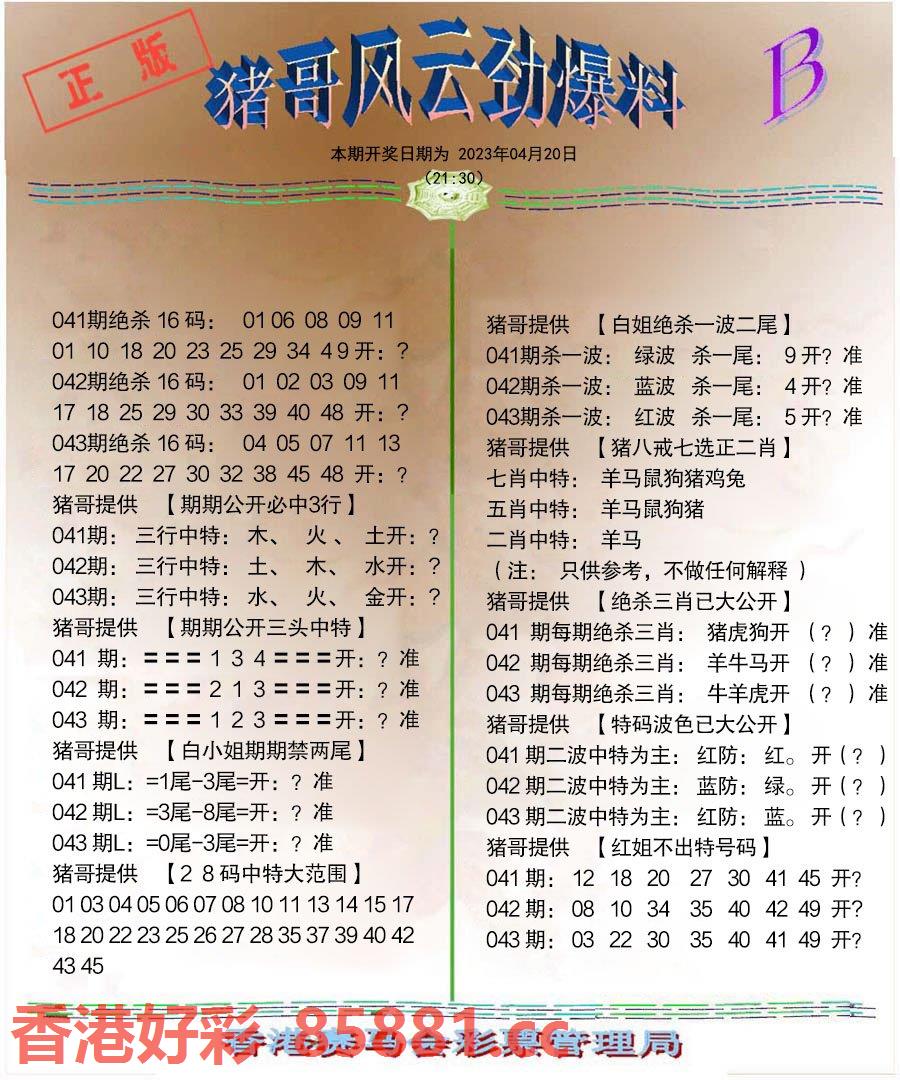 正版
猪哥风云劲爆料
B
本期开奖日期为 2023年04月20日
(21:30)
041期绝杀 16 码： 01 06 08 09 11
01 10 18 20 23 25 29 34 49 开：?
042期绝杀 16 码： 01 02 03 09 11
17 18 25 29 30 33 39 40 48 开：?
043期绝杀 16 码： 04 05 07 11 13
17 20 22 27 30 32 38 45 48 开：?
猪哥提供 【期期公开必中3行】
041期： 三行中特： 木、 火 、 土开：?
042期： 三行中特： 土、 木、 水开：?
043期： 三行中特： 水、 火、 金开：?
猪哥提供 【期期公开三头中特】
041 期：＝＝＝1 3 4＝＝＝开：? 准
042 期：＝＝＝2 1 3＝＝＝开：? 准
043 期：＝＝＝1 2 3＝＝＝开：? 准
猪哥提供 【白小姐期期禁两尾】
041 期L：=1尾-3尾=开：? 准
042 期L：=3尾-8尾=开：? 准
043 期L：=0尾-3尾=开：? 准
猪哥提供 【2 8 码中特大范围】
01 03 04 05 06 07 08 10 11 13 14 15 17
18 20 22 23 25 26 27 28 35 37 39 40 42
43 45
猪哥提供 【白姐绝杀一波二尾】
041期杀一波： 绿波 杀一尾： 9 开? 准
042期杀一波： 蓝波 杀一尾： 4 开? 准
043期杀一波： 红波 杀一尾： 5 开? 准
猪哥提供 【猪八戒七选正二肖】
七肖中特： 羊马鼠狗猪鸡兔
五肖中特： 羊马鼠狗猪
二肖中特： 羊马
（注： 只供参考，不做任何解释 ）
猪哥提供 【绝杀三肖已大公开】
041 期每期绝杀三肖： 猪虎狗开 （? ）准
042 期每期绝杀三肖： 羊牛马开 （? ）准
043 期每期绝杀三肖： 牛羊虎开 （? ）准
猪哥提供 【特码波色已大公开】
041 期二波中特为主： 红防： 红。 开（? ）
042 期二波中特为主： 蓝防： 绿。 开（? ）
043 期二波中特为主： 红防： 蓝。 开（? ）
猪哥提供 【红姐不出特号码】
041 期： 12 18 20 27 30 41 45 开?
042 期： 08 10 34 35 40 42 49 开?
043 期： 03 22 30 35 40 41 49 开?
香港好彩 85881.cc
香港赛马会彩票管理局